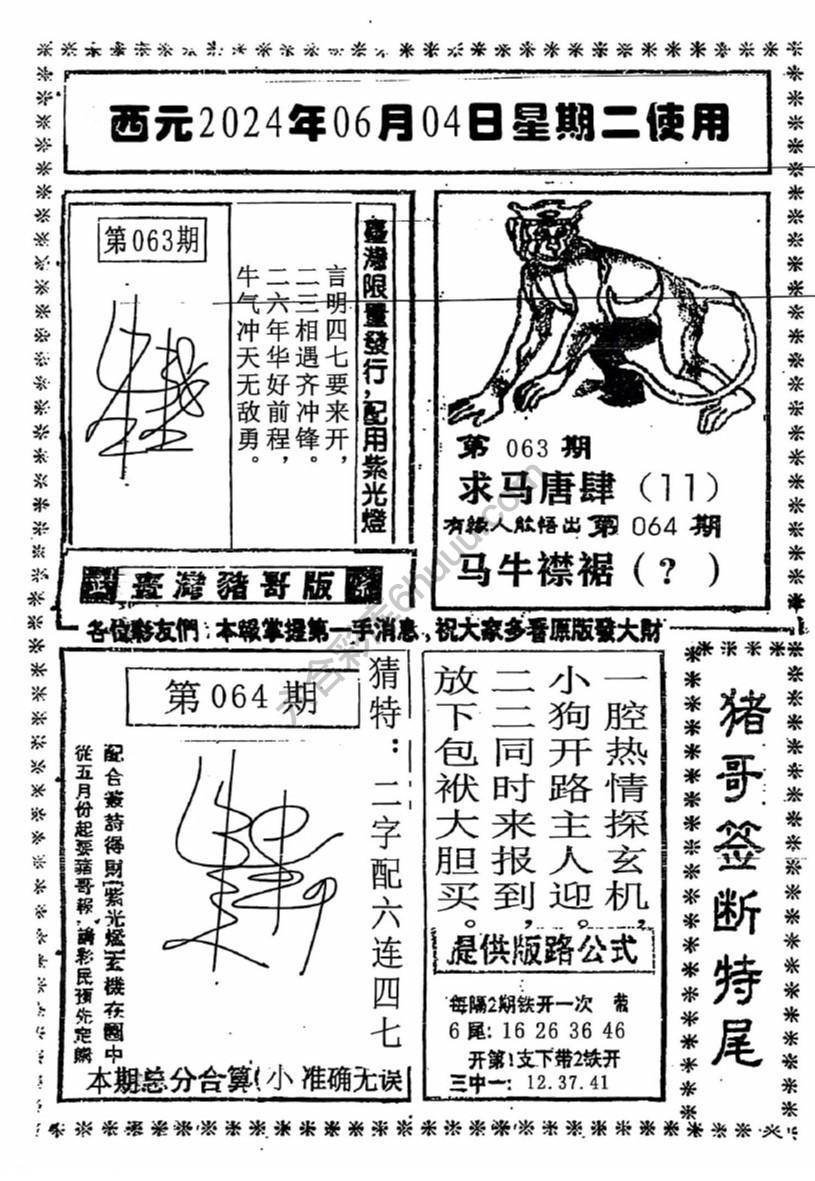 西元2024年06月04日星期二使用
第063期
臺灣限量發行,配用紫光燈
言明四七要来开,
二三相遇齐冲锋。
二六年华好前程,
牛气冲天无敌勇。
臺灣豬哥版
第 063 期
求马唐肆（11）
有緣人能悟出 第 064 期
马牛襟裾（?）
各位彩友們:本報掌握第一手消息,祝大家多看原版發大財
第 064 期
猜特：二字配六连四七
配合籤詩得財(紫光燈)玄機在圖中
從五月份起要豬哥報,請彩民預先定購
本期总分合算(小 准确无误
一腔热情探玄机,
小狗开路主人迎。
二二同时来报到,
放下包袱大胆买。
提供版路公式
每隔2期铁开一次 带
6 尾: 16 26 36 46
开第1支下带2铁开
三中一: 12.37.41
猪哥签断特尾
六合彩库6huuu.com